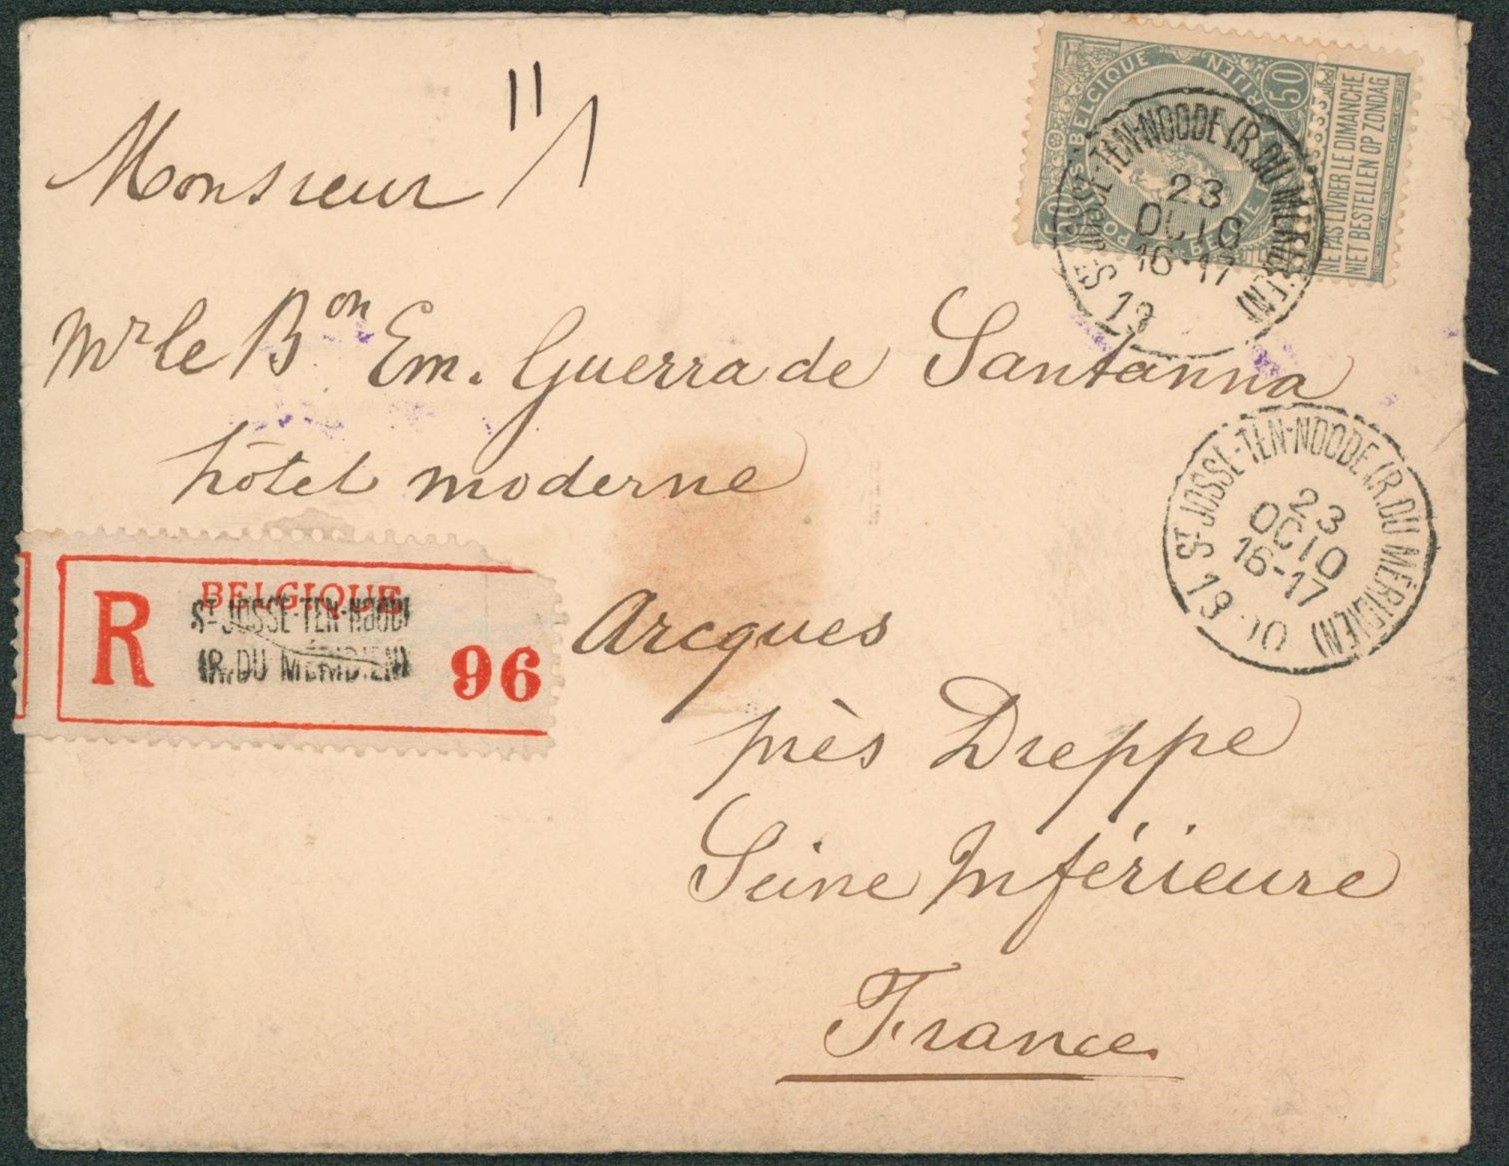 Monsieur
Mr le Bon Em. Guerra de Santanna
hôtel moderne
Arcques
près Dieppe
Seine Inférieure
France
BELGIQUE
R
ST JOSSE-TEN-NOOD
(R. DU MÉRIDIEN)
96
50
BELGIQUE
BELGIE
NE PAS LIVRER LE DIMANCHE.
NIET BESTELLEN OP ZONDAG.
ST JOSSE-TEN-NOODE (R. DU MÉRIDIEN)
23
OCTO
16-17
19
ST JOSSE-TEN-NOODE (R. DU MÉRIDIEN)
23
OCTO
16-17
19 00